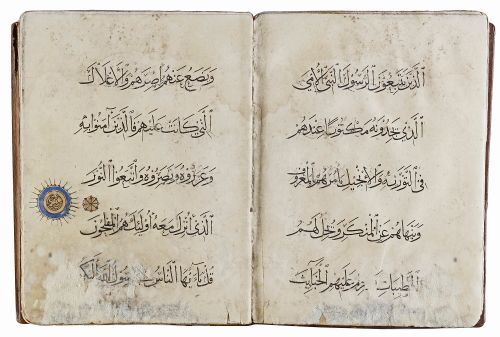 الذين يتبعون الرسول النبي الامي
الذي يجدونه مكتوبا عندهم
في التورية والانجيل يامرهم بالمعروف
وينهاهم عن المنكر ويحل لهم
الطيبات عليهم الخبايث
ويضع عنهم اصرهم والاغلال
التي كانت عليهم فالذين آمنوا به
وعزروه ونصروه واتبعوا النور
الذي انزل معه اولئك هم المفلحون
قل يا ايها الناس رسول الله اليكم